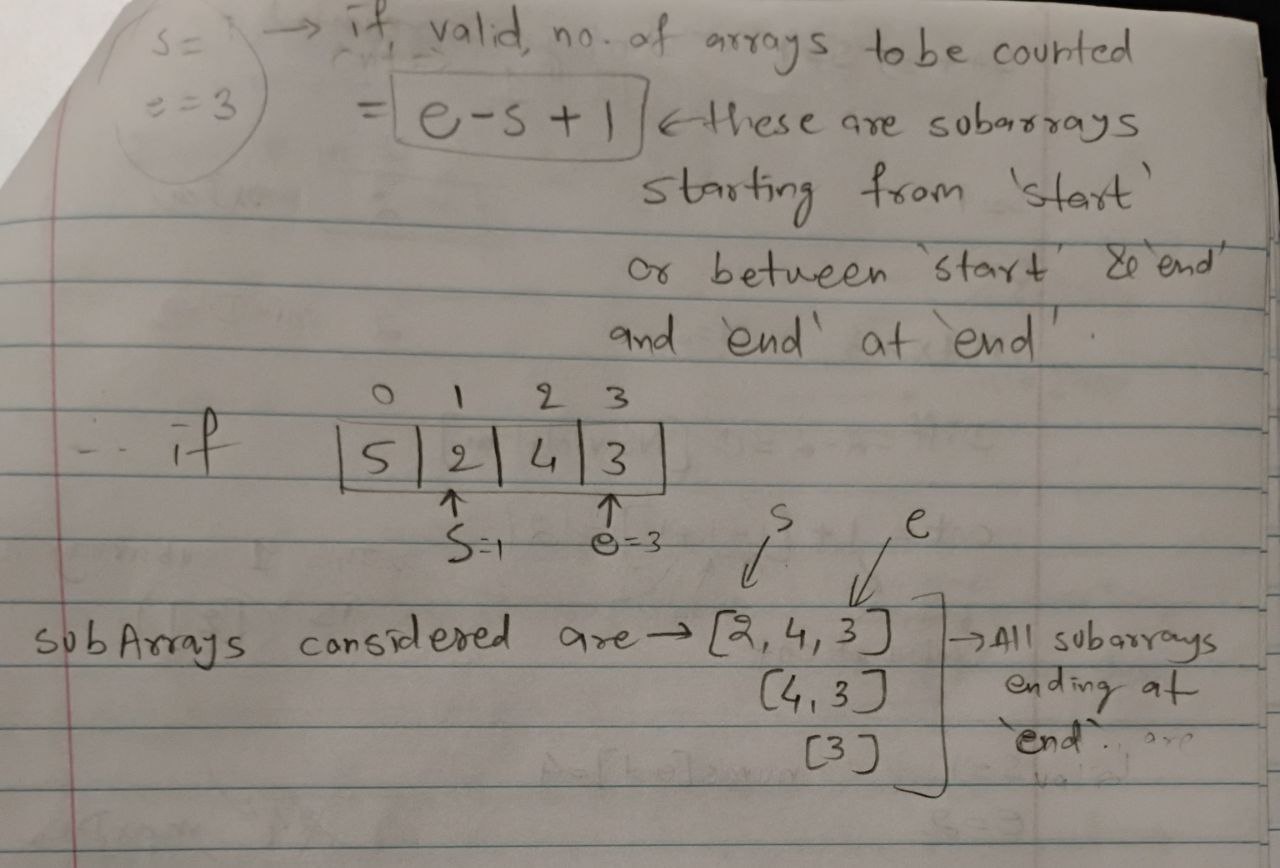 s=
e=3
→ if valid, no. of arrays to be counted
= e-s+1 ← these are subarrays
starting from 'start'
or between 'start' & 'end'
and 'end' at 'end'.
0 1 2 3
if 5 2 4 3
S=1 e=3
s e
subArrays considered are → [2, 4, 3] → All subarrays
[4, 3] ending at
[3] 'end'. are